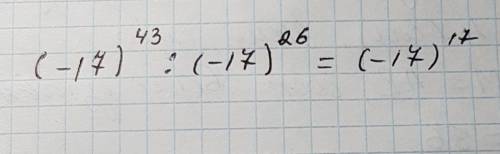 (-17)⁴³ : (-17)²⁶ = (-17)¹⁷